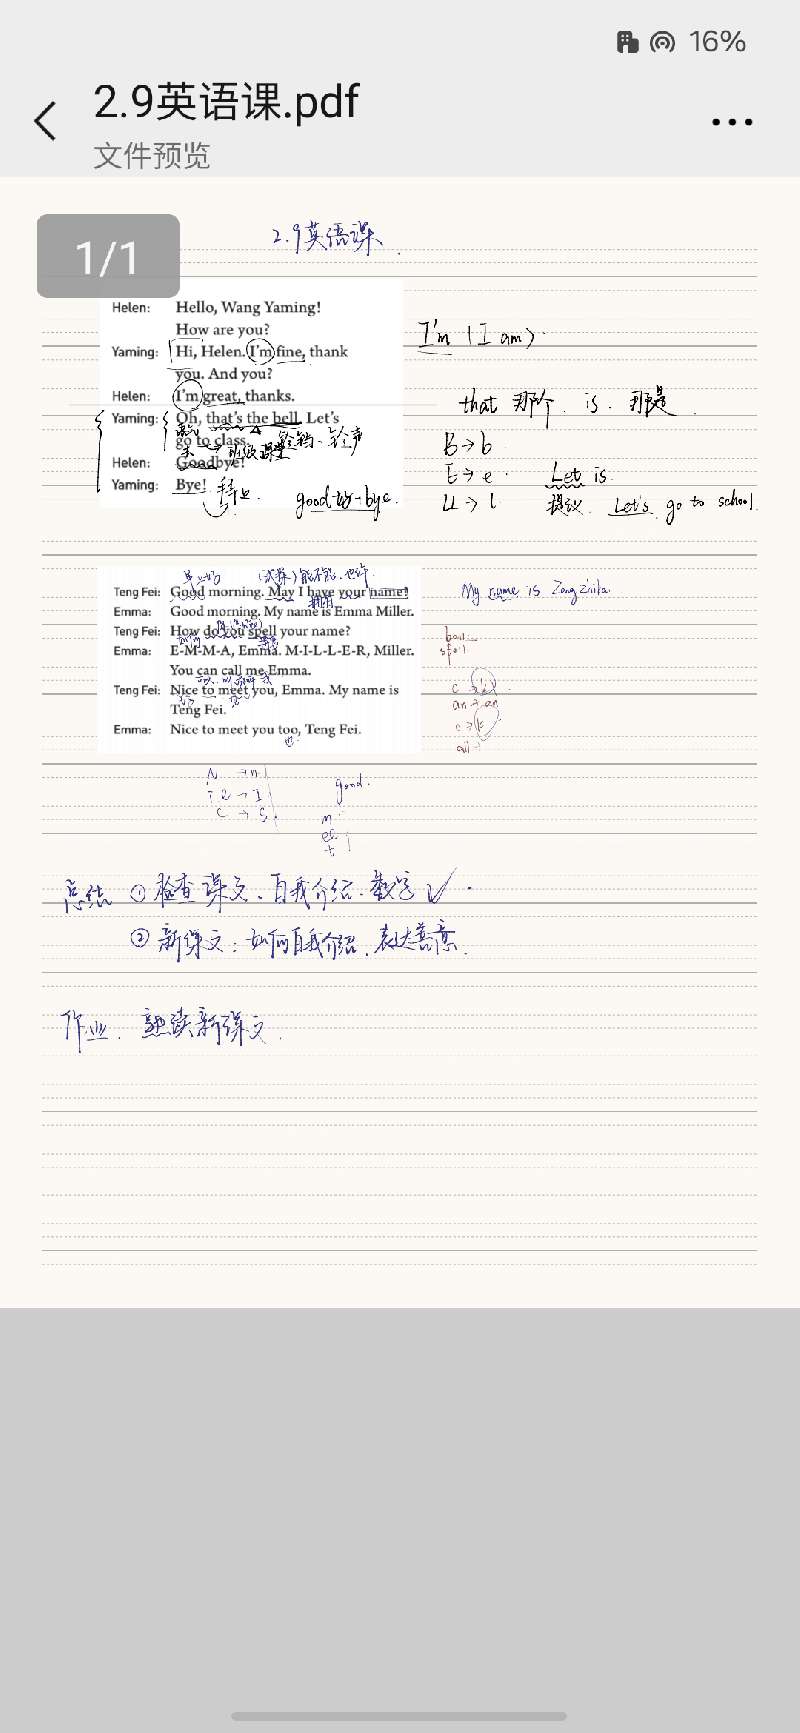 16%
2.9英语课.pdf
文件预览
1/1
2.9英语课
Helen: Hello, Wang Yaming!
How are you?
Yaming: Hi, Helen. I'm fine, thank
you. And you?
Helen: I'm great, thanks.
Yaming: Oh, that's the bell. Let's
go to class.
铃铛、铃声
Helen: Goodbye!
Yaming: Bye!
I'm (I am)
that 那个 is 那是
B→b
E→e Let is
LL→l 提议 Let's go to school
早上好
Teng Fei: Good morning. May I have your name?
Emma: Good morning. My name is Emma Miller.
Teng Fei: How do you spell your name?
Emma: E-M-M-A, Emma. M-I-L-L-E-R, Miller.
You can call me Emma.
Teng Fei: Nice to meet you, Emma. My name is
Teng Fei.
Emma: Nice to meet you too, Teng Fei.
也
My name is
good
总结 ① 检查课文、自我介绍、数字 ✓
② 新课文：如何自我介绍、表达善意
作业、熟读新课文